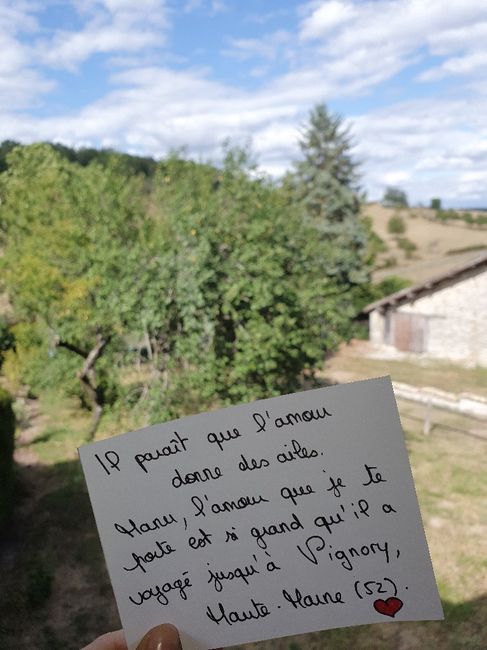 Il paraît que l'amour
donne des ailes.
Manu, l'amour que je te
porte est si grand qu'il a
voyagé jusqu'à Vignory,
Haute-Marne (52).